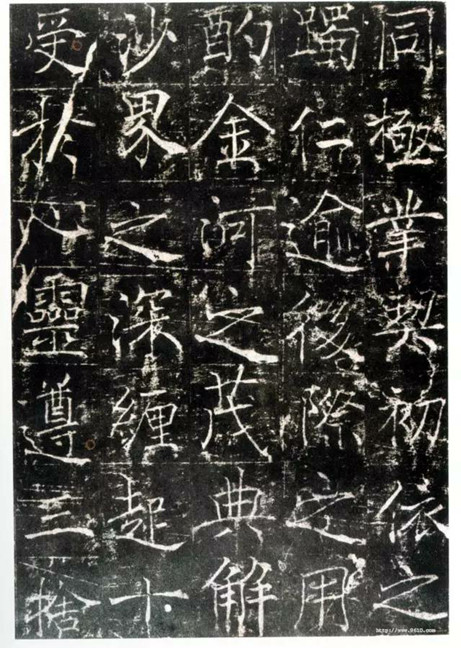 同極業契初依之
躅仁逾後際之用
酌金河之茂典解
沙界之深纏起十
受於心靈遵三
http://www.9610.com